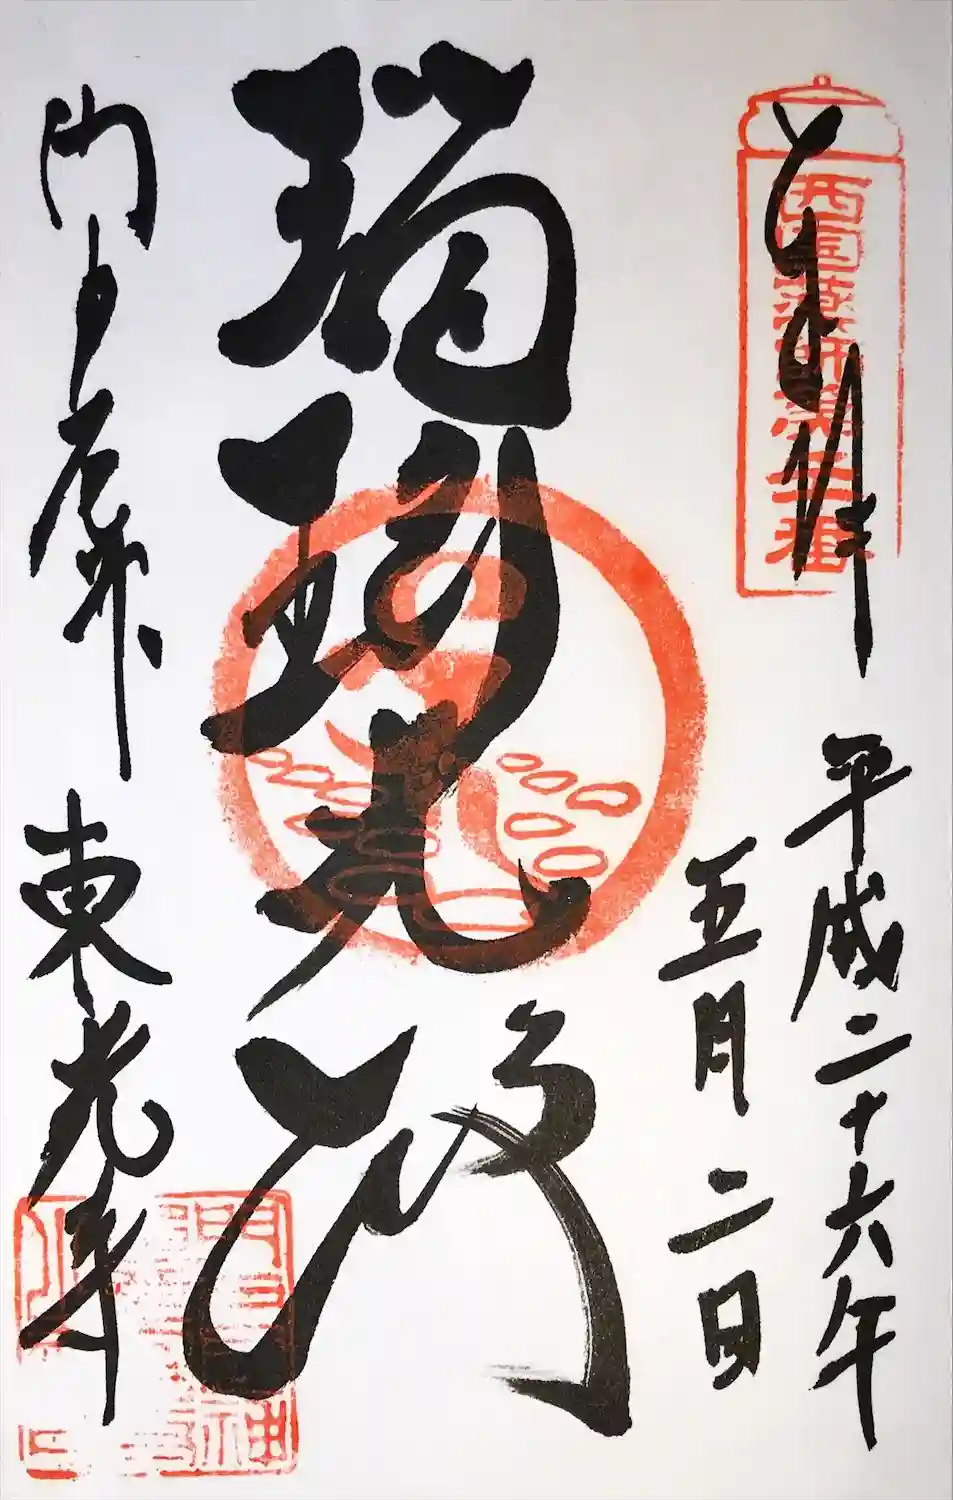 西国薬師第二十番
奉拝
平成二十六年
五月二日
瑠璃光殿
門戸厄神
東光寺